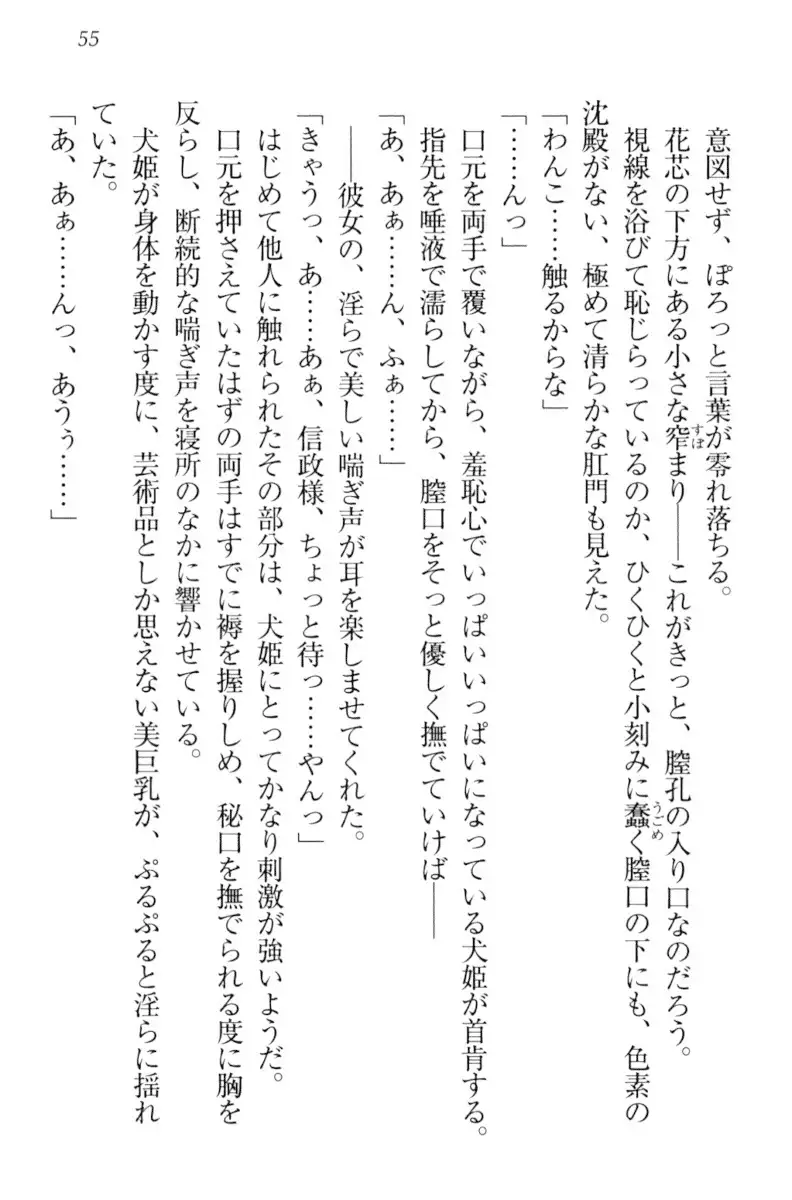 55
意図せず、ぽろっと言葉が零れ落ちる。
花芯の下方にある小さな窄まり――これがきっと、膣孔の入り口なのだろう。
すぼ
視線を浴びて恥じらっているのか、ひくひくと小刻みに蠢く膣口の下にも、色素の
うごめ
沈殿がない、極めて清らかな肛門も見えた。
「わんこ……触るからな」
「……んっ」
口元を両手で覆いながら、羞恥心でいっぱいいっぱいになっている犬姫が首肯する。
指先を唾液で濡らしてから、膣口をそっと優しく撫でていけば――
「あ、あぁ……ん、ふぁ……」
――彼女の、淫らで美しい喘ぎ声が耳を楽しませてくれた。
「きゃうっ、あ……あぁ、信政様、ちょっと待っ……やんっ」
はじめて他人に触れられたその部分は、犬姫にとってかなり刺激が強いようだ。
口元を押さえていたはずの両手はすでに褥を握りしめ、秘口を撫でられる度に胸を
反らし、断続的な喘ぎ声を寝所のなかに響かせている。
犬姫が身体を動かす度に、芸術品としか思えない美巨乳が、ぷるぷると淫らに揺れ
ていた。
「あ、あぁ……んっ、あうぅ……」